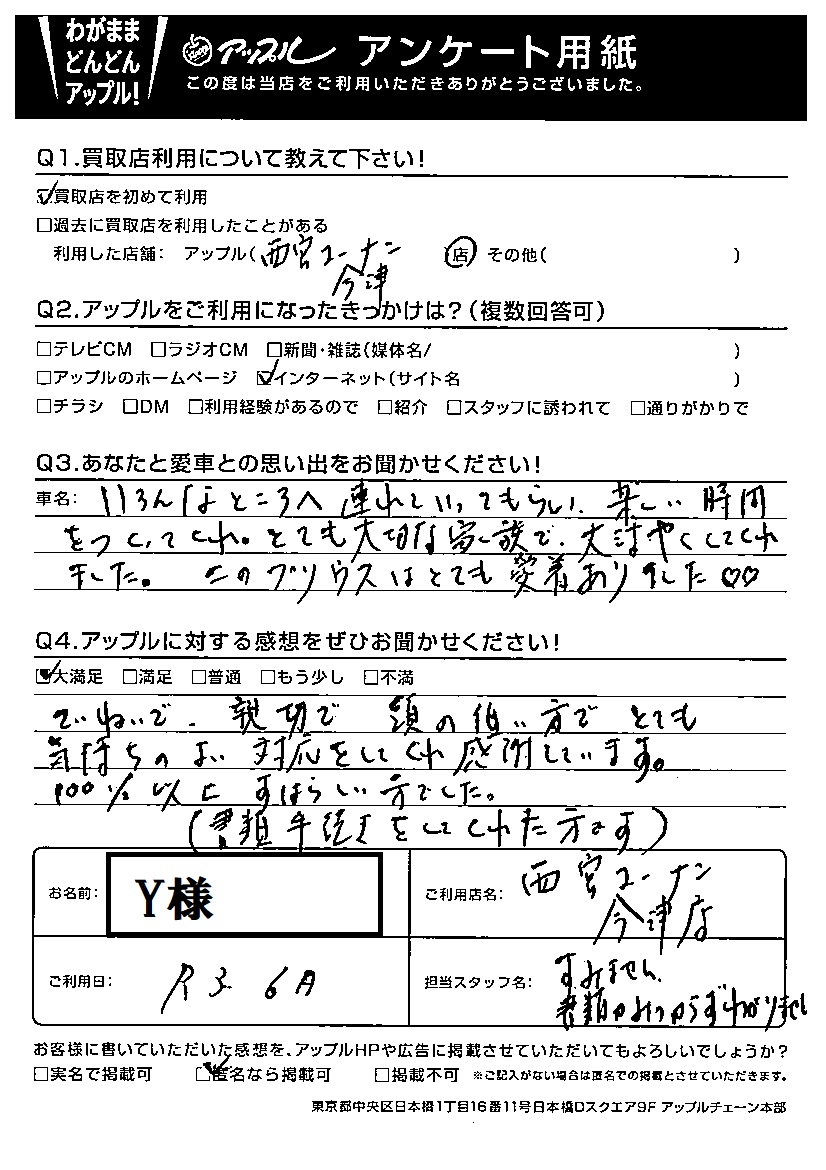 わがまま
どんどん
アップル!
アップル アンケート用紙
この度は当店をご利用いただきありがとうございました。
Q1.買取店利用について教えて下さい!
☑買取店を初めて利用
□過去に買取店を利用したことがある
利用した店舗: アップル(西宮コーナン 店 その他( )
今津
Q2.アップルをご利用になったきっかけは?(複数回答可)
□テレビCM □ラジオCM □新聞・雑誌(媒体名/ )
□アップルのホームページ ☑インターネット(サイト名 )
□チラシ □DM □利用経験があるので □紹介 □スタッフに誘われて □通りがかりで
Q3.あなたと愛車との思い出をお聞かせください!
車名: いろんなところへ連れていってもらい、楽しい時間
をつくってくれ。とても大切な家族で、大活やくしてくれ
ました。 このプリウスはとても愛着ありました♡♡
Q4.アップルに対する感想をぜひお聞かせください!
☑大満足 □満足 □普通 □もう少し □不満
ていねいで、親切で 頭の低い方でとても
気持ちのよい対応をしてくれ感謝しています。
100%以上すばらしい方でした。
(書類手続きをしてくれた方です)
お名前: Y様
ご利用店名: 西宮コーナン
今津店
ご利用日: R3 6月
担当スタッフ名: すみません
書類がみつからずわかりません
お客様に書いていただいた感想を、アップルHPや広告に掲載させていただいてもよろしいでしょうか?
□実名で掲載可 ☑匿名なら掲載可 □掲載不可 ※ご記入がない場合は匿名での掲載とさせていただきます。
東京都中央区日本橋1丁目16番11号日本橋Dスクエア9F アップルチェーン本部